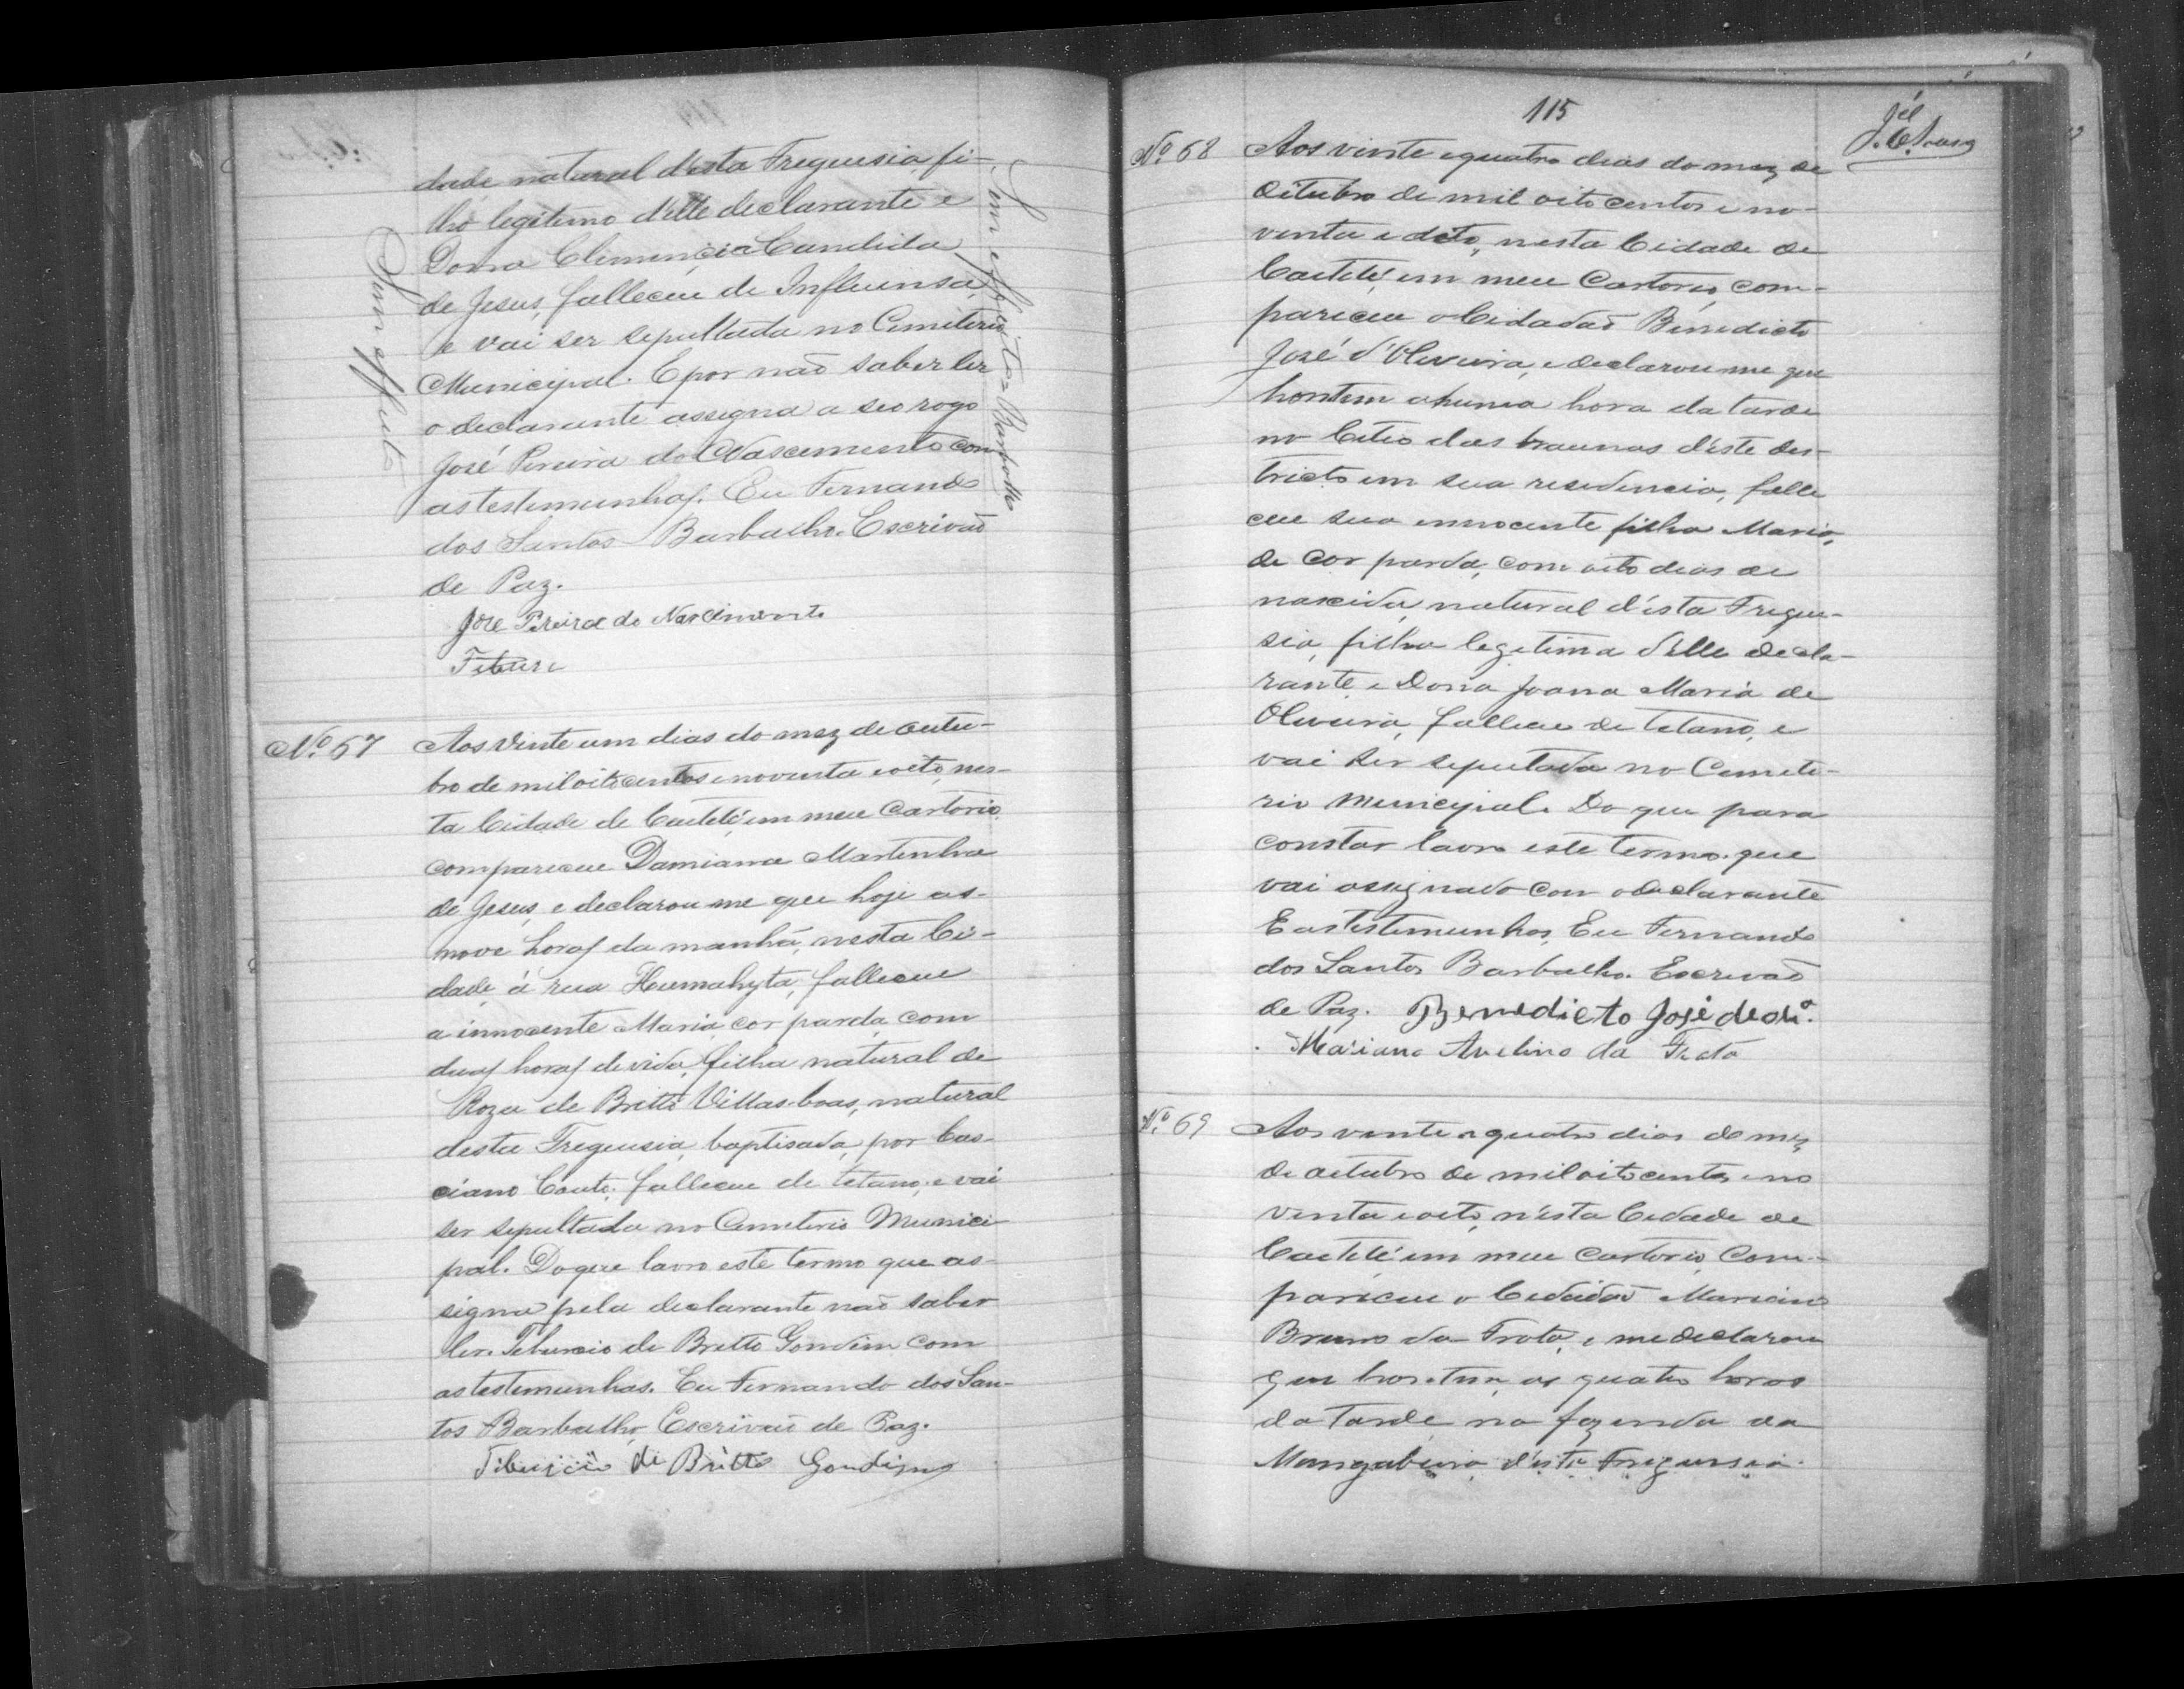 dade natural d'esta Freguesia, fi-
lho legitimo d'elle declarante e
Dona Clemencia Candida
de Jesus, falleceu de Influensa,
e vai ser sepultada no Cemiterio
Municipal. E por não saber ler
o declarante assigna a seo rogo
José Pereira do Nascimento com
as testemunhas. Eu Fernando
dos Santos Barbalho. Escrivão
de Paz.
Jose Pereira do Nascimento
Tiburc
Sem effeito
Sem effeito Barbalho
Nº 67
Aos vinte um dias do mez de outu-
bro de mil oito centos e noventa e oito, nes-
ta Cidade de Caetité em meu Cartorio,
compareceu Damiana Martinha
de Jesus, e declarou me que hoje as-
nove horas da manhã, nesta Ci-
dade, á rua Humahyta, falleceu
a innocente Maria, cor parda, com
duas horas de vida, filha natural de
Roza de Britto Villas-boas, natural
desta Freguesia, baptisada, por Cas-
ciano Couto, falleceu de tetano, e vai
ser sepultada no Cemiterio Munici-
pal. Do que lavro este termo que as-
signa pela declarante não saber
ler. Tiburcio de Britto Gondim com
as testemunhas. Eu Fernando dos San-
tos Barbalho, Escrivão de Paz.
Tiburcio de Britto Gondim
115
Nº 68
Aos vinte e quatro dias do mez de
Oitubro de mil oito centos e no-
venta e oito, nesta Cidade de
Caetité, em meu Cartorio, com-
pareceu o Cidadão Benedicto
José d'Oliveira, e declarou me que
hontem a huma hora da tarde
no Citio das braunas d'este des-
tricto em sua residencia, falle
ceu sua innocente filha Maria,
de cor parda, com oito dias de
nascida, natural d'esta Fregue-
sia, filha legitima d'elle decla-
rante e Dona Joana Maria de
Oliveira, falleceu de tetano, e
vai ser sepultada no Cemite-
rio Municipal. Do que para
constar lavro este termo que
vai assignado com o declarante
E as testemunhas, Eu Fernando
dos Santos Barbalho. Escrivão
de Paz. Benedicto José de Oli.ª
Mariano Avelino da Frota
Nº 69
Aos vinte e quatro dias do mez
de oitubro de mil oito centos e no
venta e oito, n'esta Cidade de
Caetité em meu cartorio, com-
pareceu o Cidadão Mariano
Bruno da Frota, e me declarou
que hontem, as quatro horas
da tarde, na fazenda da
Mangabeira d'esta Freguesia.